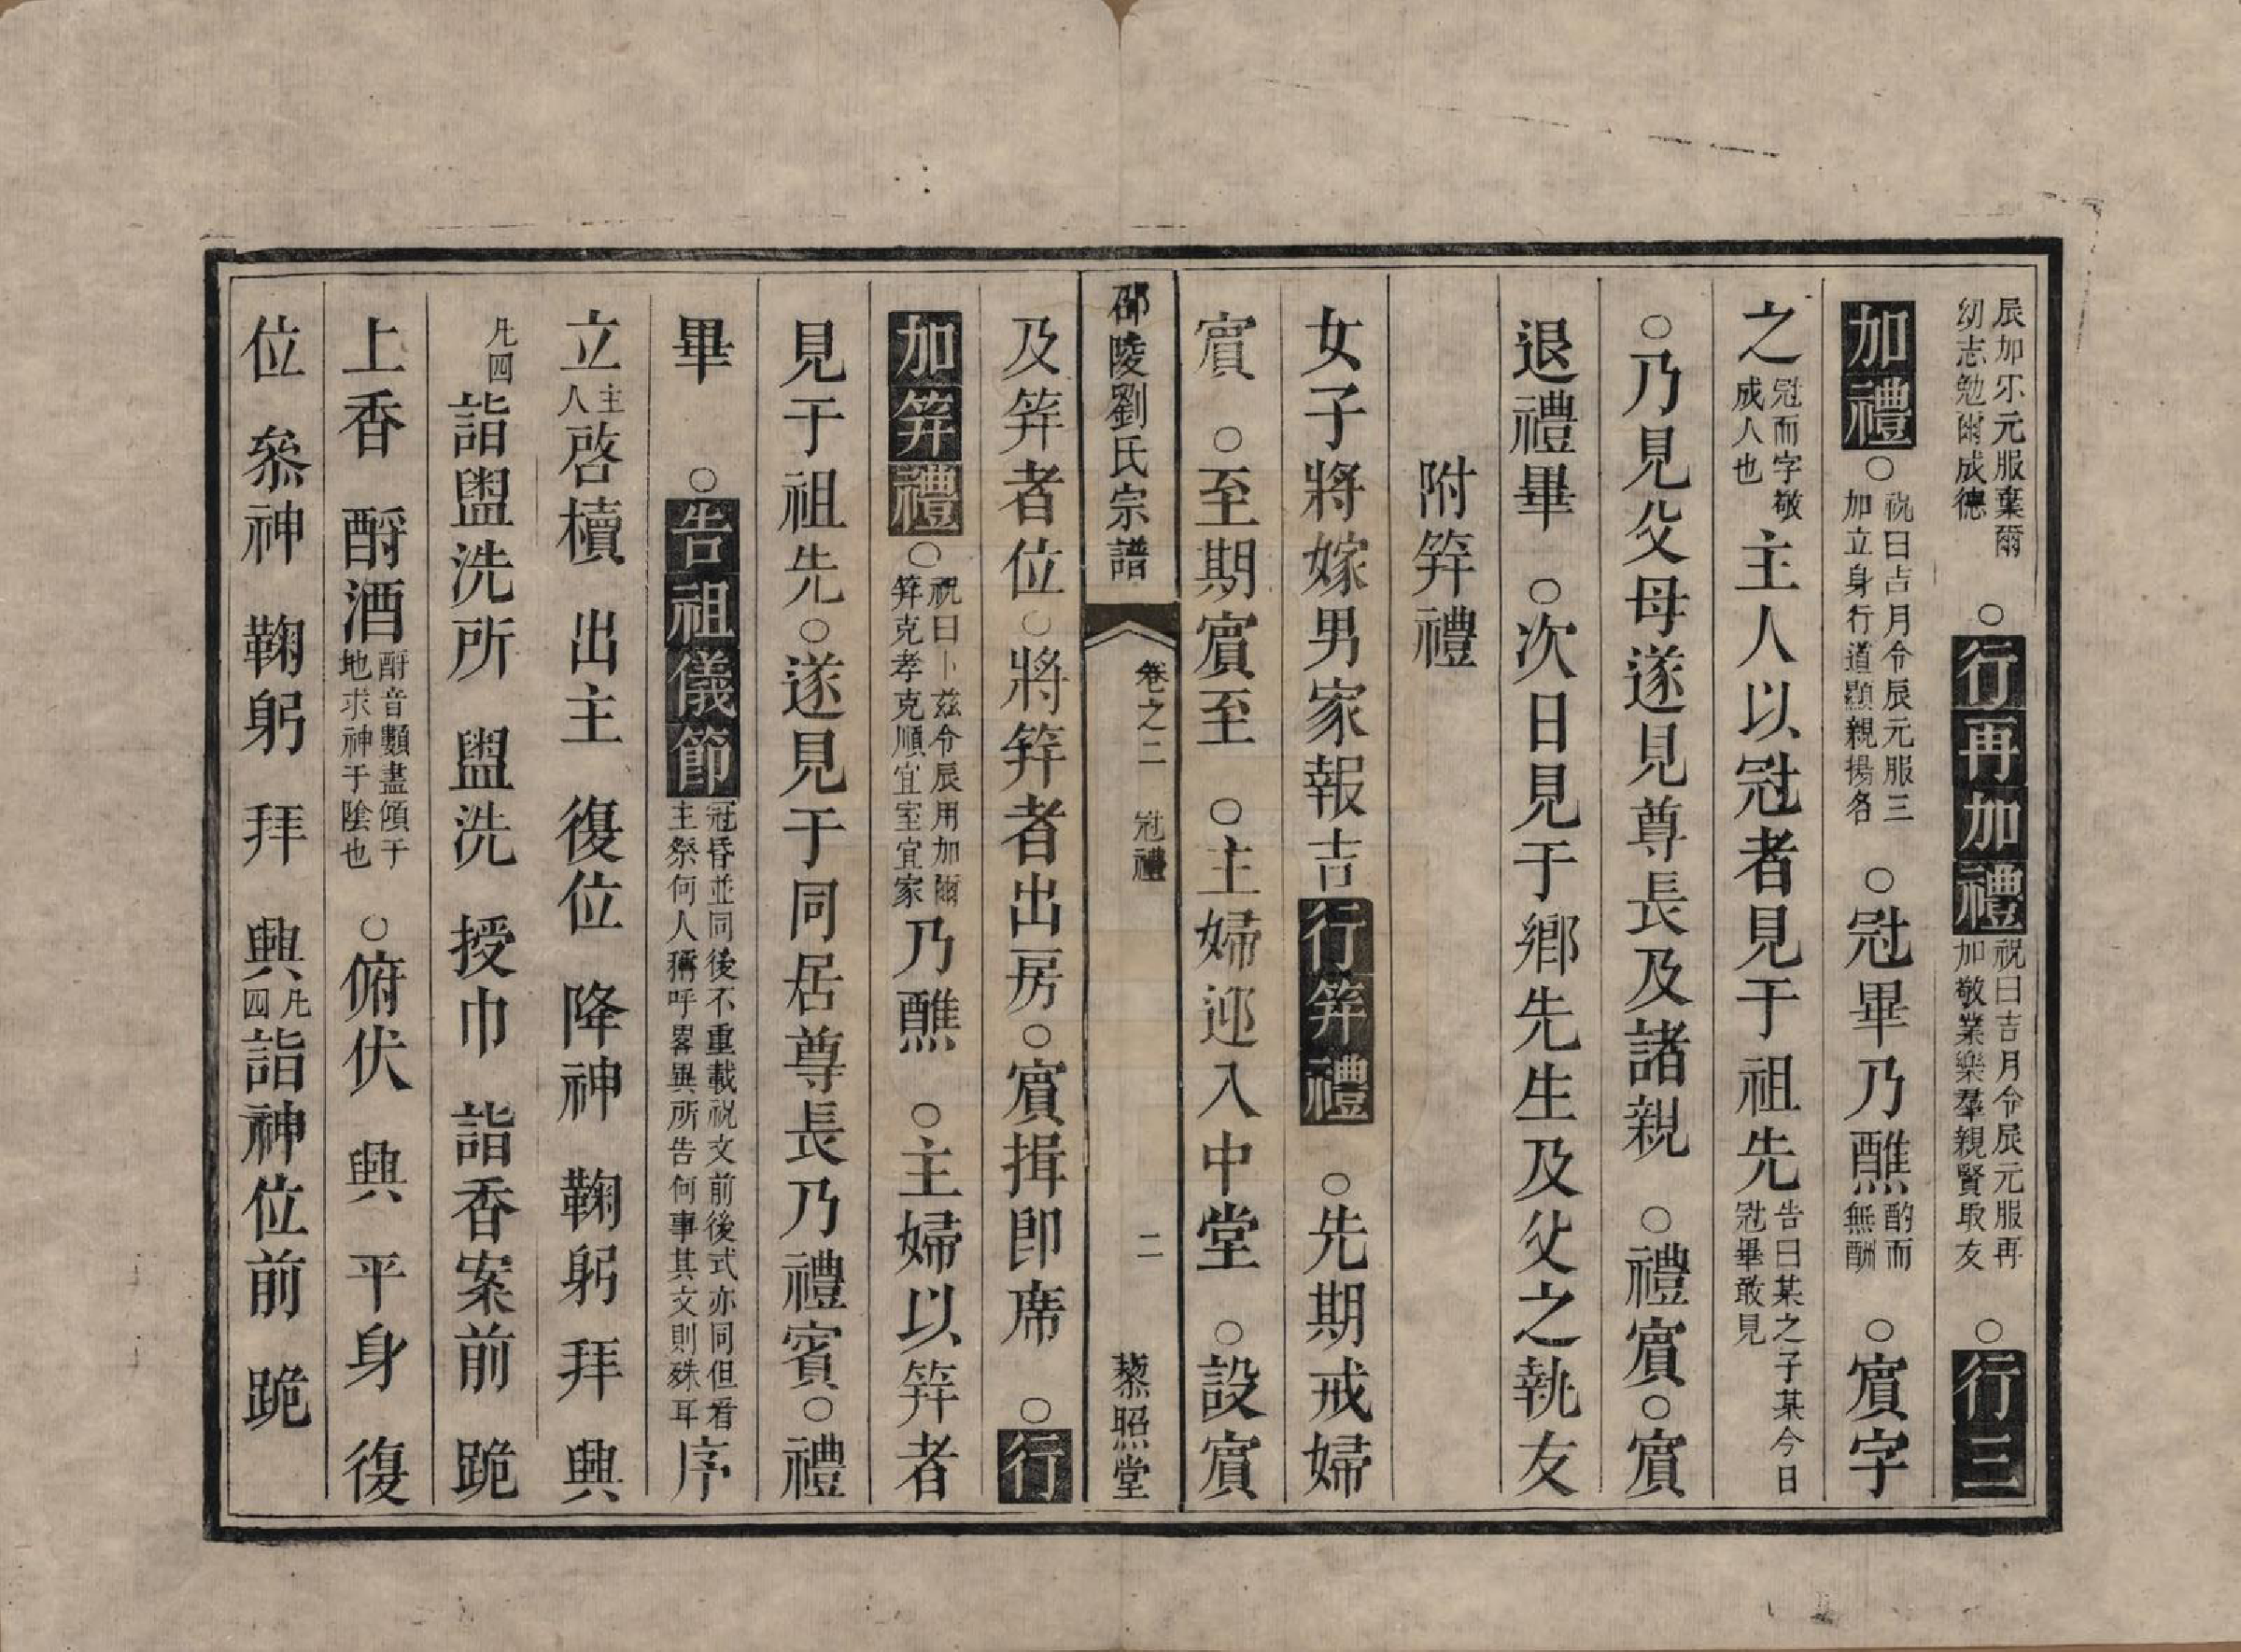 辰加尔元服棄爾幼志勉爾成德　○行再加禮祝曰吉月令辰元服再加敬業樂羣親賢取友　○行三
加禮○祝曰吉月令辰元服三加立身行道顯親揚名　○冠畢乃醮酌而無酬　○賓字
之冠而字敬成人也　主人以冠者見于祖先告曰某之子某今日冠畢敢見
○乃見父母遂見尊長及諸親　○禮賓○賓
退禮畢　○次日見于鄉先生及父之執友
附笄禮
女子將嫁男家報吉行笄禮　○先期戒婦
賓　○至期賓至　○主婦迎入中堂　○設賓
邵陵劉氏宗譜　卷之二　冠禮　二　藜照堂
及笄者位○將笄者出房○賓揖即席　○行
加笄禮○祝曰卜兹令辰用加爾笄克孝克順宜室宜家乃醮　○主婦以笄者
見于祖先○遂見于同居尊長乃禮賓○禮
畢　○告祖儀節冠昏並同後不重載祝文前後式亦同但看主祭何人稱呼畧異所告何事其文則殊耳序
立主人啓櫝　出主　復位　降神　鞠躬　拜　興
凡四詣盥洗所　盥洗　授巾　詣香案前　跪
上香　酹酒酹音類盡傾于地求神于陰也　○俯伏　興　平身　復
位　叅神　鞠躬　拜　興凡四詣神位前　跪